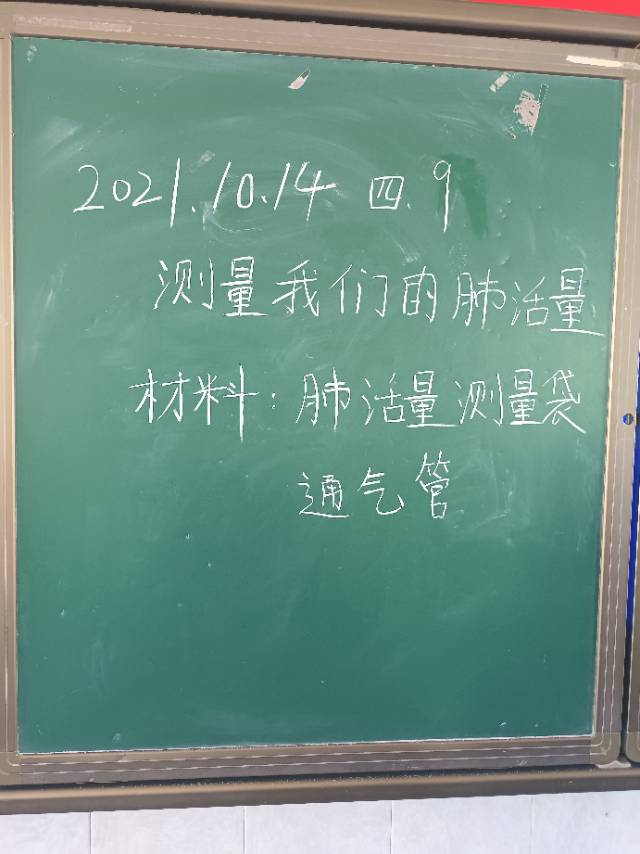 2021.10.14 四.9
测量我们的肺活量
材料:肺活量测量袋
通气管